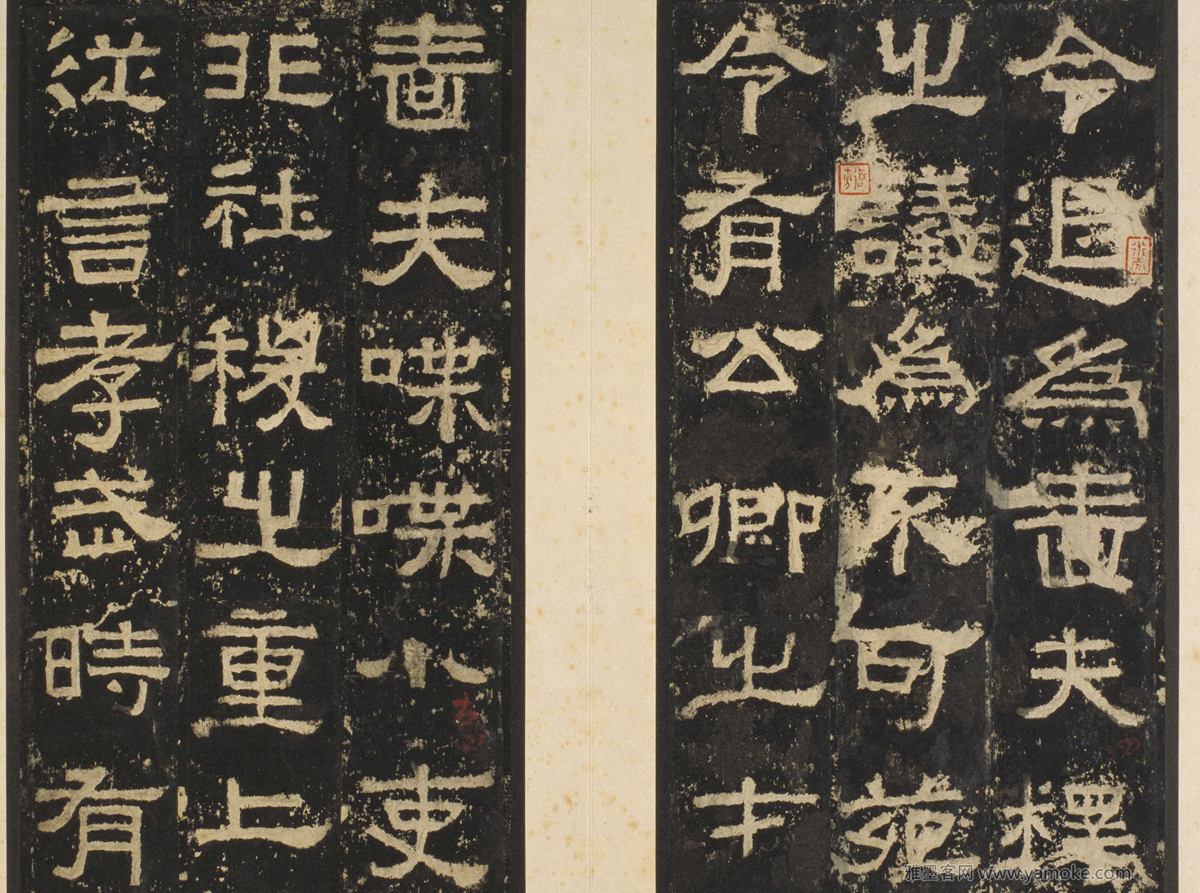 令退為嗇夫釋
之議為不可苑
令有公卿之才
嗇夫喋喋小吏
非社稷之重上
從言孝武時有
雅墨客网 www.yamoke.com